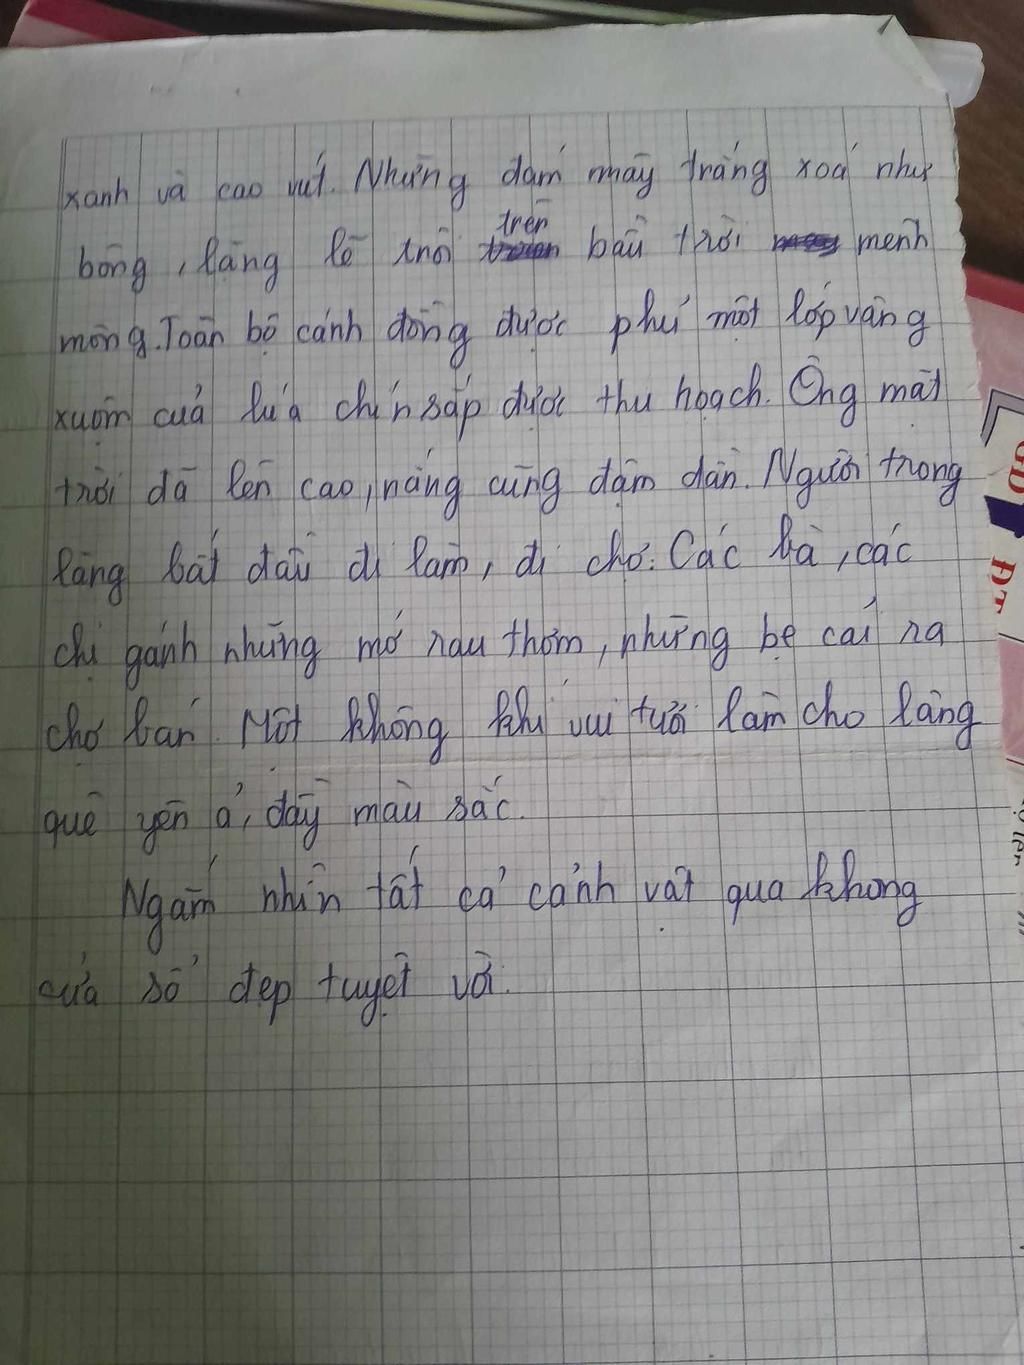 xanh và cao vút. Những đám mây trắng xoá như
bông, lặng lẽ trôi trên bầu trời mênh
mông. Toàn bộ cánh đồng được phủ một lớp vàng
xuộm của lúa chín sắp được thu hoạch. Ông mặt
trời đã lên cao, nắng cũng đậm dần. Người trong
làng bắt đầu đi làm, đi chợ. Các bà, các
chị gánh những mớ rau thơm, những bẹ cải ra
chợ bán. Một không khí vui tươi làm cho làng
quê yên ả, đầy màu sắc.
Ngắm nhìn tất cả cảnh vật qua khung
cửa sổ đẹp tuyệt vời.
GD
ĐT